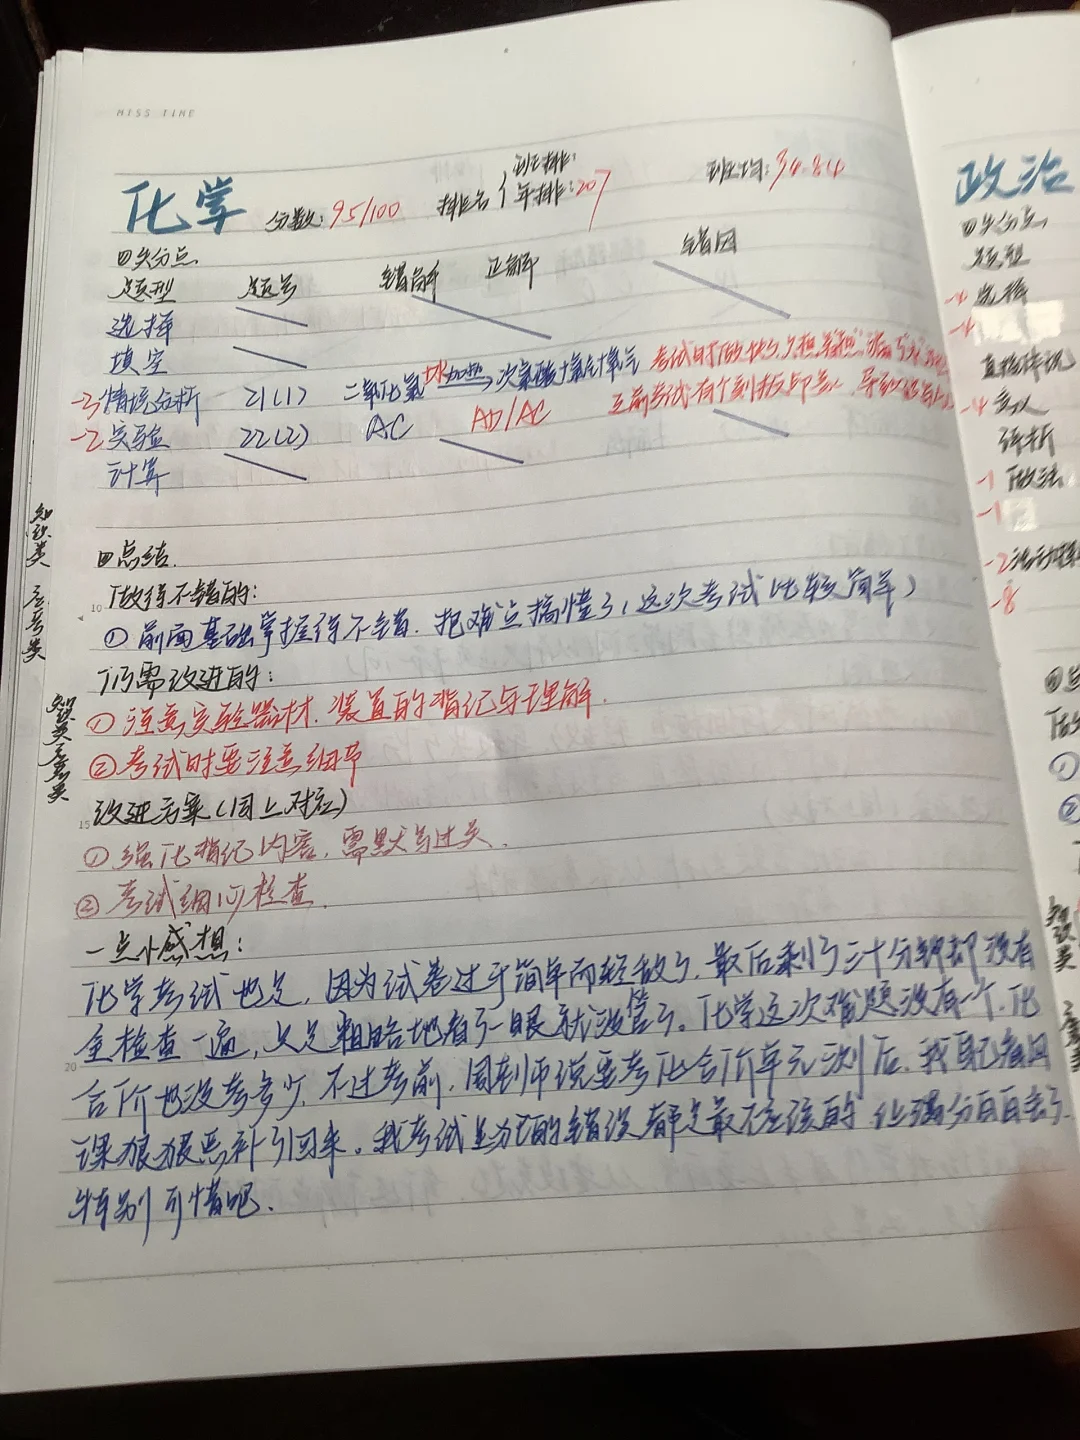 MISS TIME
化学 分数:95/100 排名{班排: 年排:207 班均:34.84
失分点
题型 题号 错解 正解 错因
选择
填空
-3 情境分析 21(1) 加热 考试时
-2 实验 22(2) AC AD/AC 之前考试有个刻板印象,导致
计算
总结
10
做得不错的:
① 前面基础掌握得不错.把难点搞懂了(这次考试比较简单)
仍需改进的:
① 注意实验器材.装置的背记与理解.
② 考试时要注意细节
15
改进方案(同上对应)
① 强化背记内容,需默写过关.
② 考试细心检查.
一点小感想:
化学考试也是,因为试卷过于简单而轻敌了.最后剩了三十分钟却没有
全检查一遍,只是粗略地看了一眼就没管了。化学这次难题没有一个.化
20
合价也没考多少.不过考前.周老师说要考化合价单元测后.我自己
课狠狠恶补了回来。我考试的错误都是最不应该的.让满分白白丢了.
特别可惜吧.
知识类
知识类
政治
失分点
题型
-4 选择
-4
-1 做法
-1
-2
-8
①
②
知识类